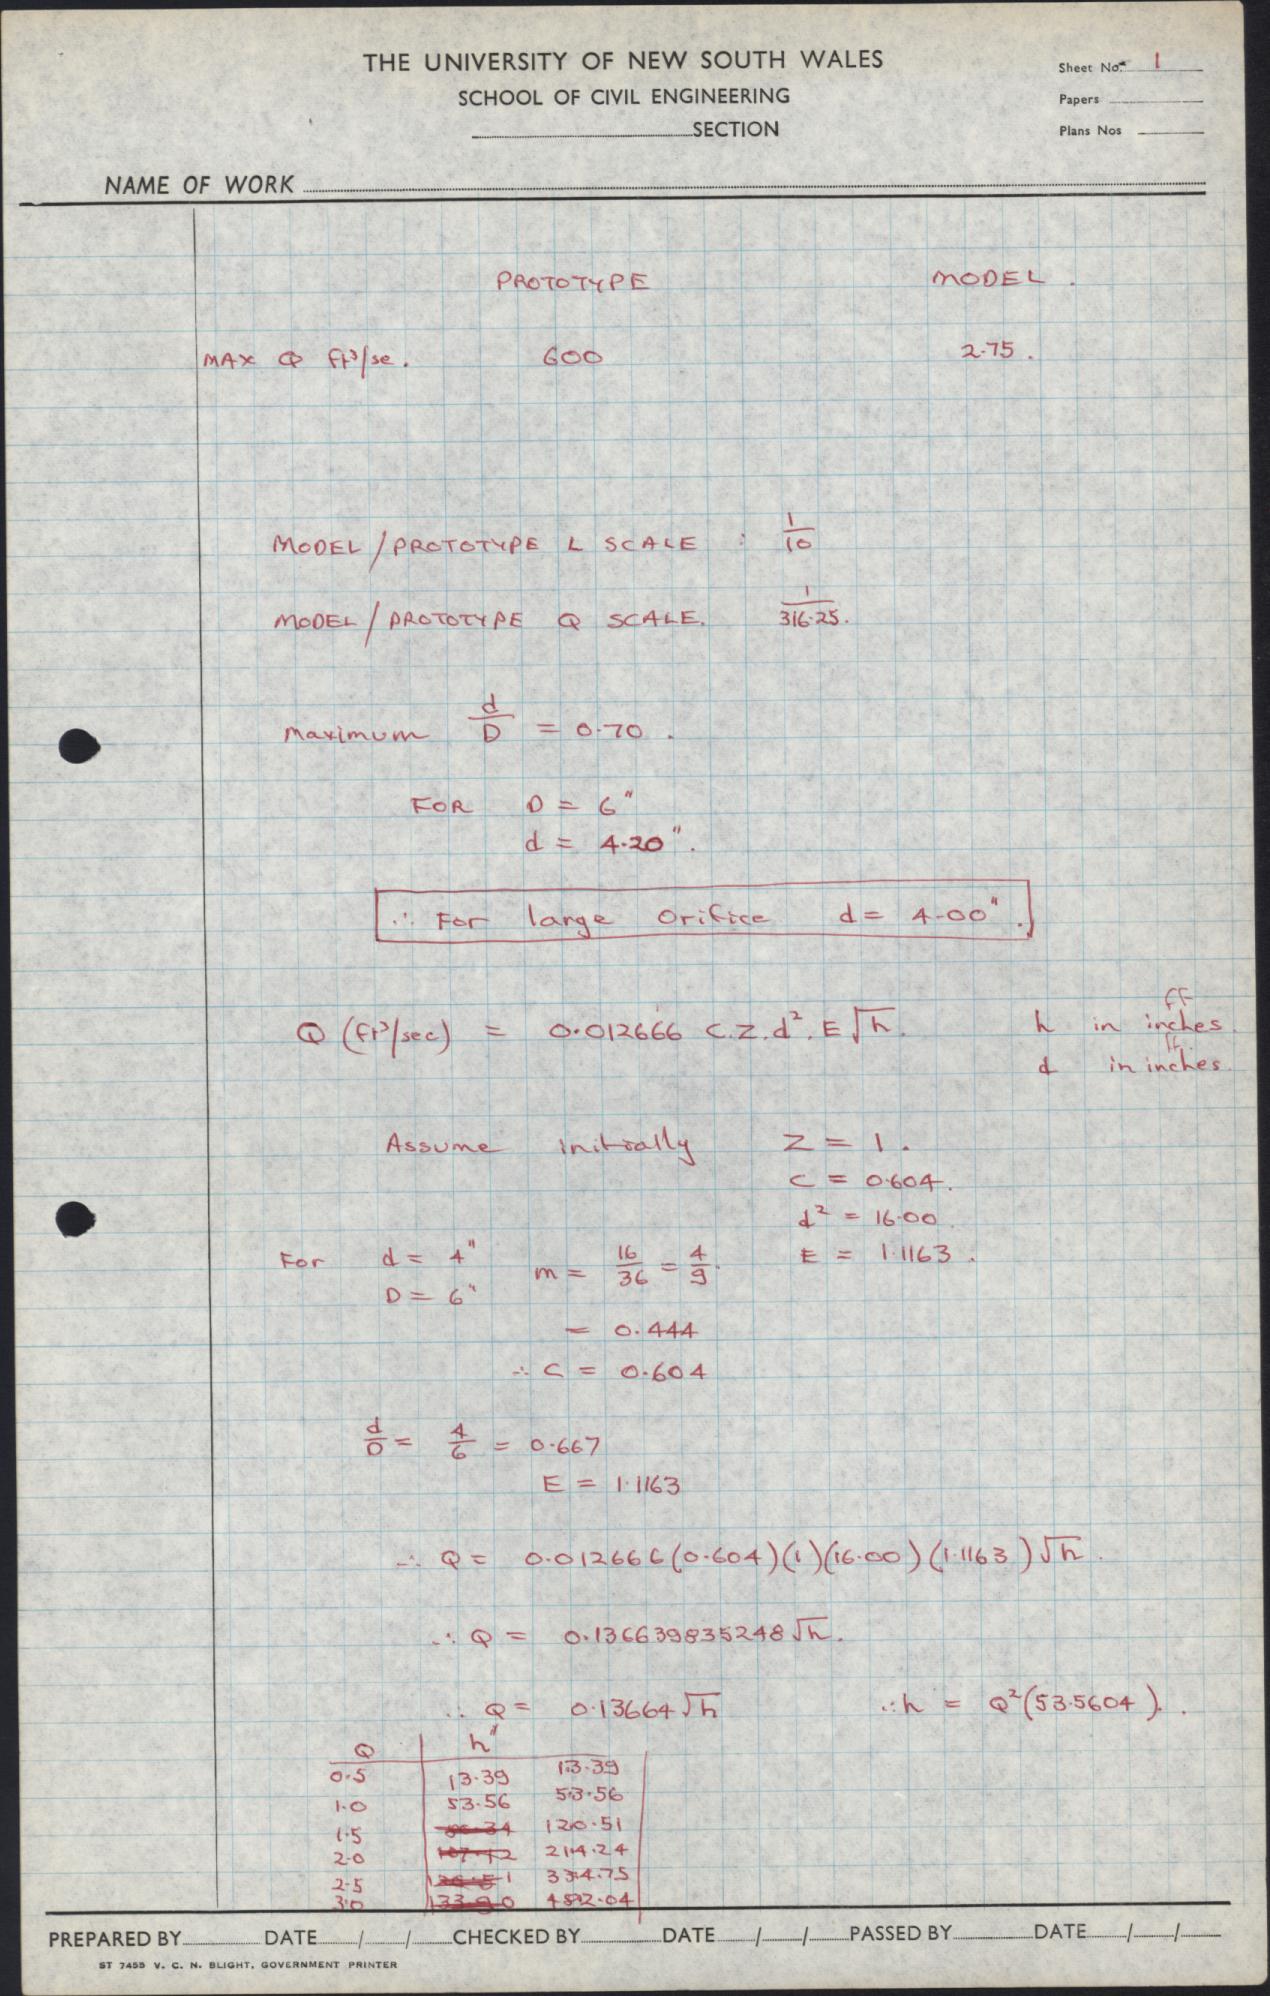 THE UNIVERSITY OF NEW SOUTH WALES
Sheet No. 1
SCHOOL OF CIVIL ENGINEERING
Papers
SECTION
Plans Nos
NAME OF WORK
PROTOTYPE MODEL.
MAX Q ft³/se. 600 2.75.
MODEL/PROTOTYPE L SCALE : 1/10
MODEL/PROTOTYPE Q SCALE. 1/316.25.
maximum d/D = 0.70.
FOR D = 6"
d = 4.20".
∴ For large orifice d = 4.00".
ff
Q (ft³/sec) = 0.012666 C.Z.d².E√h. h in inches.
ff.
d in inches.
Assume initially Z = 1.
C = 0.604.
d² = 16.00.
For d = 4" m = 16/36 = 4/9. E = 1.1163.
D = 6"
= 0.444
∴ C = 0.604
d/D = 4/6 = 0.667
E = 1.1163
∴ Q = 0.012666(0.604)(1)(16.00)(1.1163)√h.
∴ Q = 0.136639835248√h.
∴ Q = 0.13664√h ∴ h = Q²(53.5604).
Q h"
0.5 13.39 13.39
1.0 53.56 53.56
1.5 120.51
2.0 107.12 214.24
2.5 334.75
3.0 482.04
PREPARED BY DATE / / CHECKED BY DATE / / PASSED BY DATE / /
ST 7455 V. C. N. BLIGHT, GOVERNMENT PRINTER